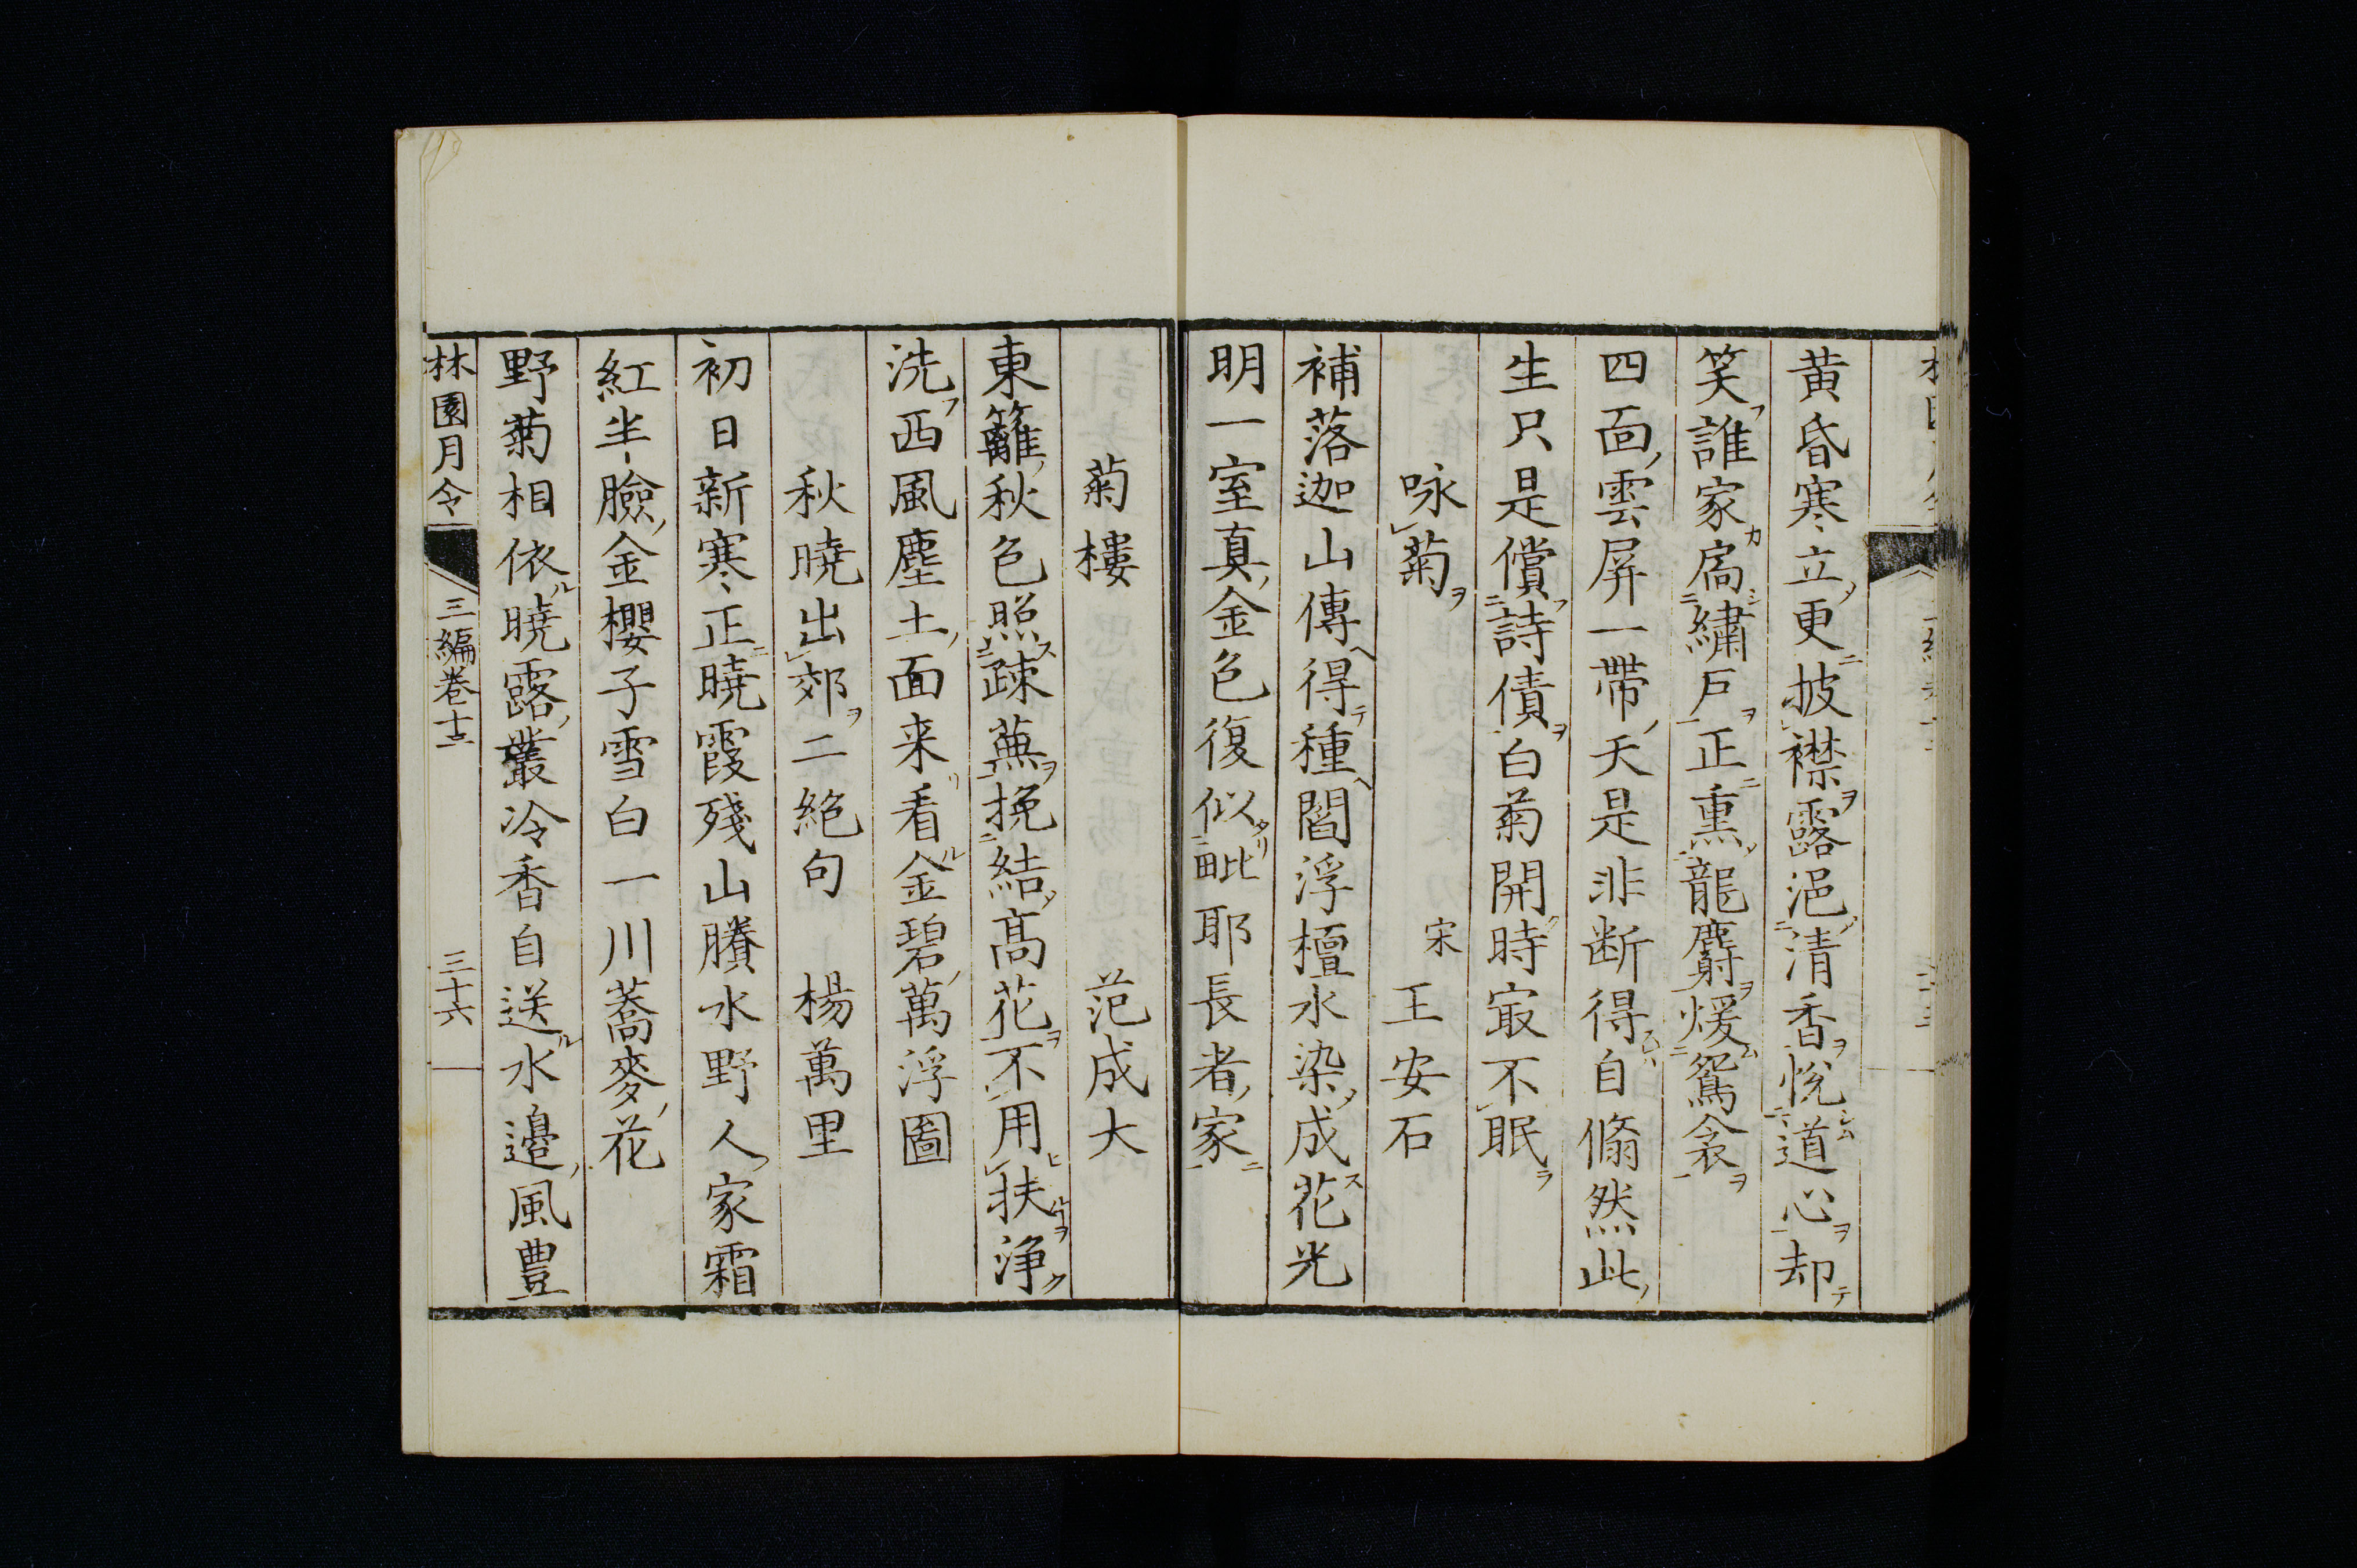 黄昏寒立更披襟露浥清香悅道心却
笑誰家扄繡戸正熏龍麝煖鴛衾
四面雲屏一帶天是非断得自翛然此
生只是償詩債白菊開時㝡不眠
咏菊　宋　王安石
補落迦山傳得種閻浮檀水染成花光
明一室真金色復似毗耶長者家
菊樓　范成大
東籬秋色照疎蕪挽結高花不用扶浄
洗西風塵土面来看金碧萬浮圖
秋曉出郊二絕句　楊萬里
初日新寒正曉霞殘山賸水野人家霜
紅半臉金櫻子雪白一川蕎麥花
野菊相依曉露叢冷香自送水邉風豊
林園月令　三編卷十二　三十六